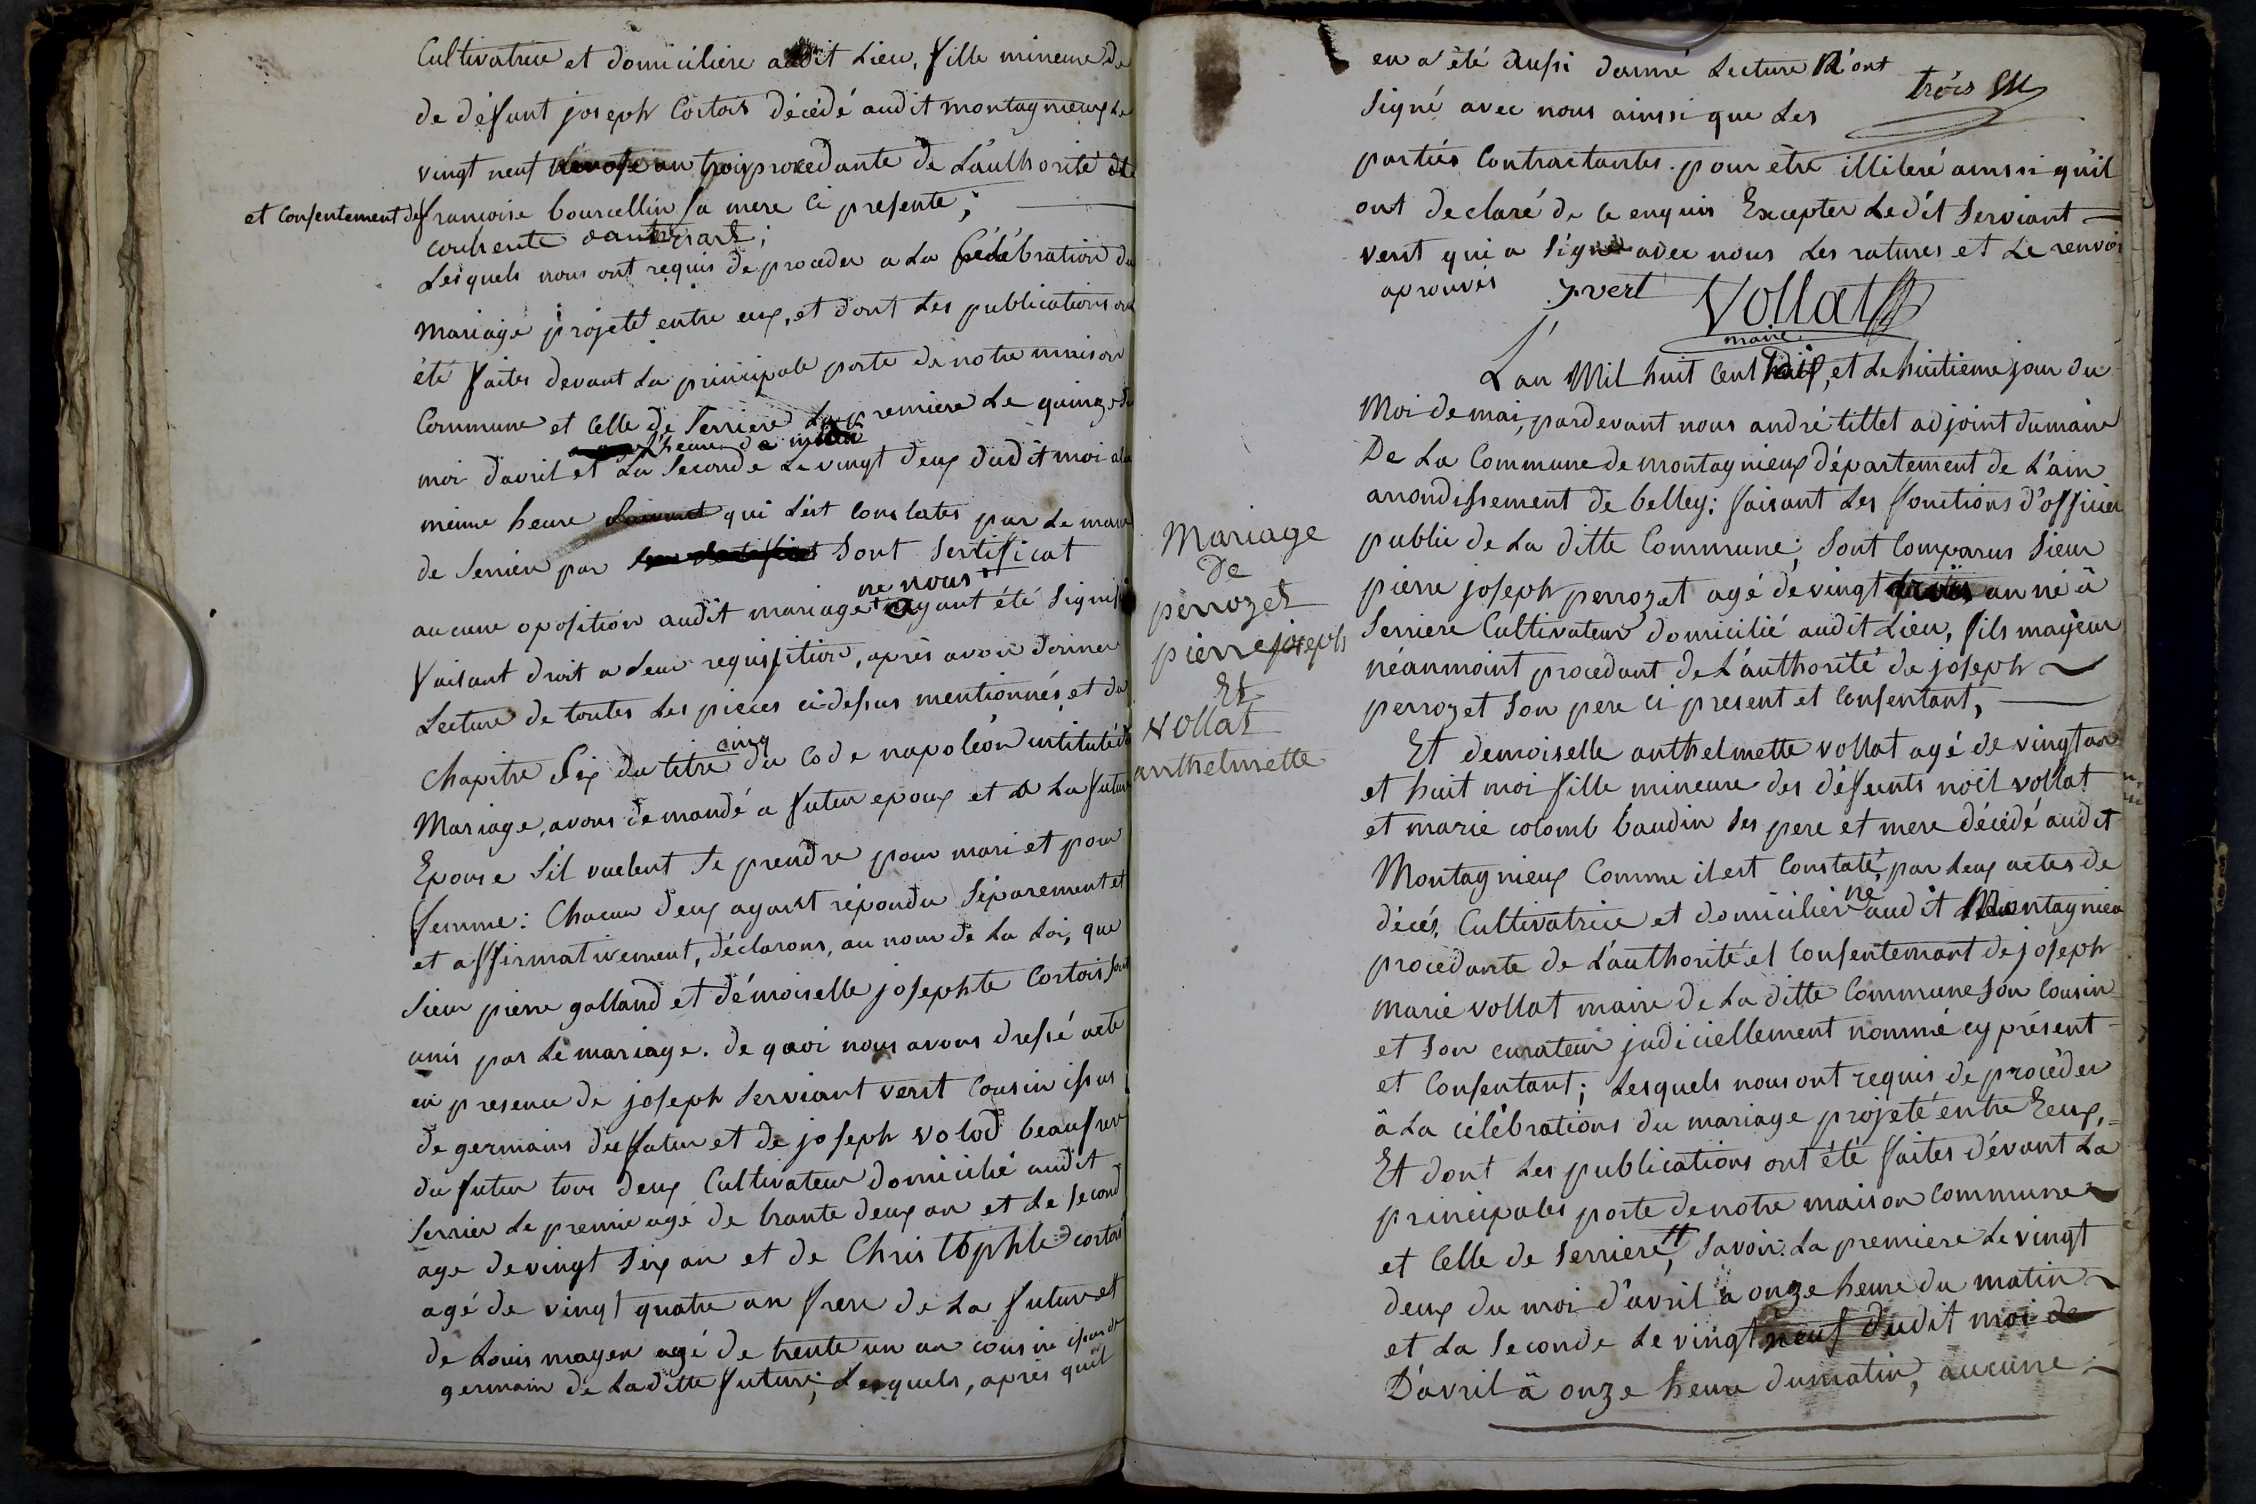 Cultivatrice et domiciliere audit Lieu, fille mineure de
de défunt joseph Cortois décédé audit montagnieux Le
vingt neuf an trois procedante de L'authorité de
et consentement de francoise bourcellin sa mere Ci presente;
Lesquels nous ont requis de proceder a La Célébration du
Mariage projeté entre eux, et dont Les publications ont
été faites devant La principale porte de notre maison
Commune et Celle de Serriere La premiere Le quinze du
heure de
moi d'avril et La Seconde Le vingt deux dudit moi a la
même heure qui L'est Constatés par Le maire
de Serrier par sont Sertificat
ne nous
aucune oposition audit mariage ayant été signifié
faisant droit a Leur requisition, après avoir donner
Lecture de toutes Les pieces ci-dessus mentionnés, et du
cinq
Chapitre Six du titre du Code napoléon intitulé du
Mariage, avons demandé a futur epoux et a La future
Epouse S'il vuelent Se prendre pour mari et pour
femme: Chacun d'eux ayant répondu Séparement et
et affirmativement, déclarons, au nom de La Loi, que
Sieur pierre galland et démoiselle josephte Cortois sont
unis par Le mariage. de quoi nous avons dressé acte
en presence de joseph Serviant vert Cousin issus
de germains du futur et de joseph volod beaufrere
du futur tous deux Cultivateur domicilié audit
Serrier Le premier agé de trante deux an et Le Second
age de vingt Six an et de Christophle cortois
agé de vingt quatre an frere de La future et
de Louis mayen agé de trente un an cousin issus de
germain de Laditte future; Lesquels, après qu'il
en a été aussi donné Lecture N'ont
trois
Signé avec nous ainssi que Les
parties Contractantes. pour être illiteré ainssi qu'il
ont declaré de Ce enquis Excepter Ledit Serviant
vert qui a Signé avec nous Les ratures et Le renvoi
aprouvés J. vert Vollat
maire
L'an Mil huit Cent dix, et Le huitieme jour du
Moi de mai, pardevant nous andré tittet adjoint du maire
De La Commune de montagnieux département de L'ain
arrondissement de belley: faisant Les fonctions d'officier
public de La ditte Commune; Sont Comparus Sieur
pierre joseph perrozet agé de vingt trois an né à
Serriere Cultivateur domicilié audit Lieu, fils mayeur
néanmoint procedant de L'authorité de joseph
perrozet Son pere Ci present et Consentant,
Mariage
de
perrozet
pierre joseph
Et
vollat
anthelmette
Et demoiselle anthelmette vollat agé de vingt an
et huit moi fille mineure des défunts noël vollat
et marie colomb baudin Ses pere et mere décédé audit
Montagnieux Comme il est Constaté, par Leux actes de
décés, Cultivatrice et domicilier audit Montagnieu
ne
procedante de L'authorité et Consentemant de joseph
Marie vollat maire de La ditte Commune Son Cousin
et Son curateur judiciellement nommé cy présent
et Consentant; Lesquels nous ont requis de procéder
à La célébrations du mariage projeté entre Eeux,
Et dont Les publications ont été faites dévant La
principales porte de notre maison Commune
et Celle de Serriere, Savoir: La premiere Le vingt
deux du moi d'avril à onze heure du matin
et La Seconde Le vingt neuf dudit moi de
D'avril à onze heure du matin, aucune